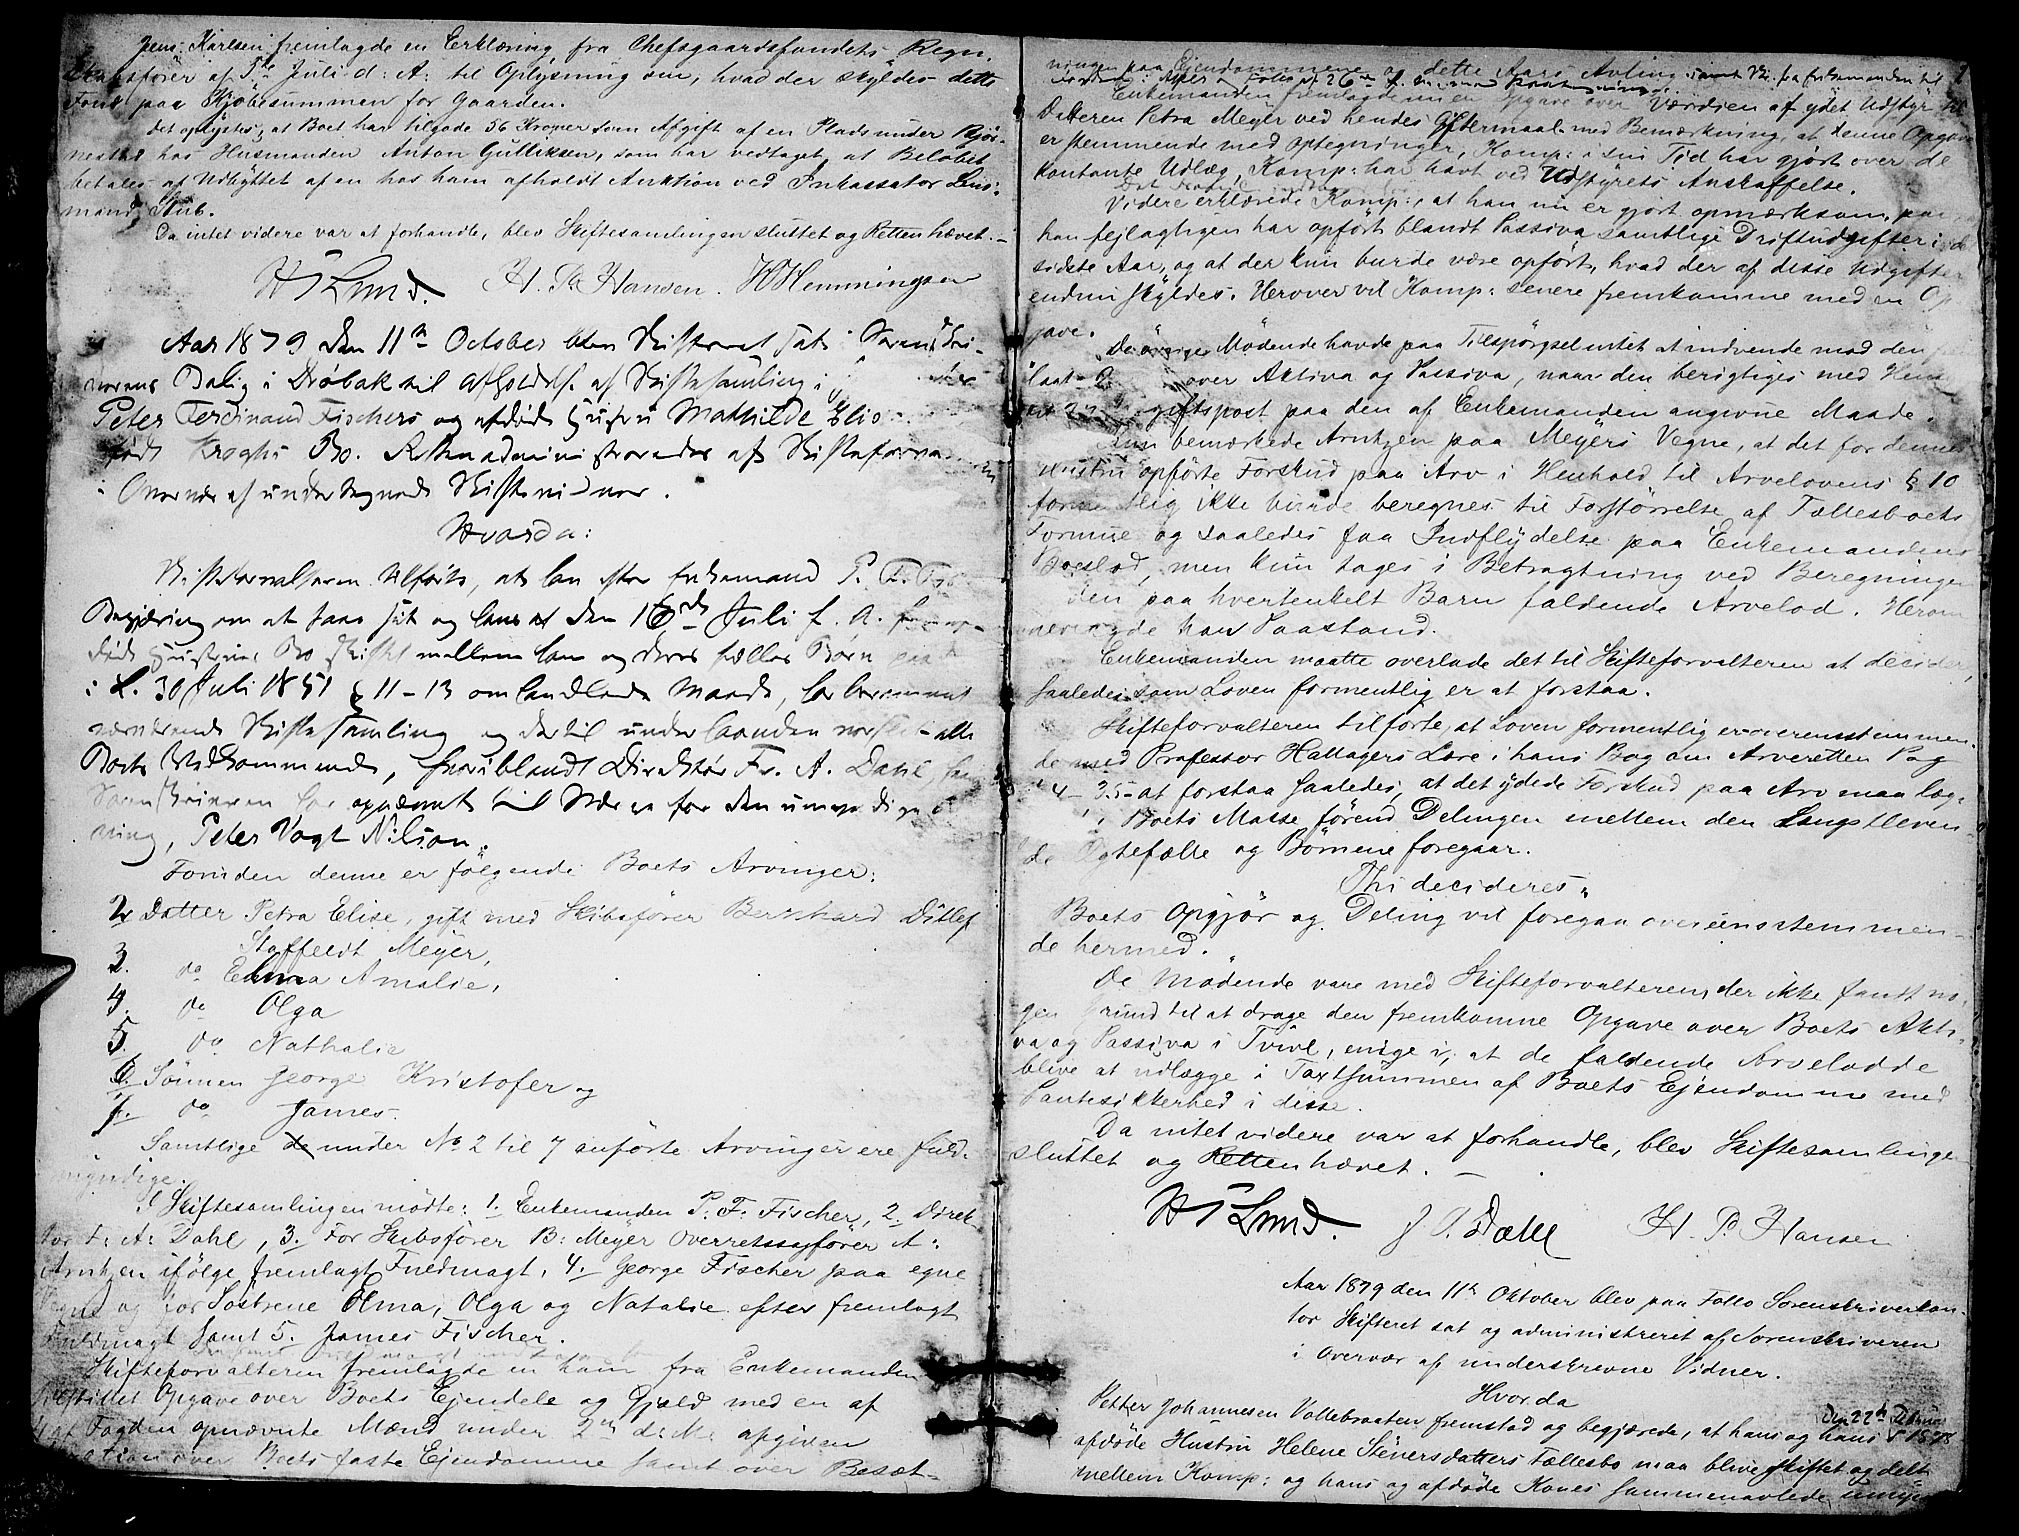 Jens Karlsen fremlagde en Erklæring fra Chefsgaardsfondets Regn-
skabsfører af 5te Juli d: A: til Oplysning om, hvad der skyldes dette
Fond paa Kjøbesummen for Gaarden.
Det oplystes, at Boet har tilgode 56 Kroner som Afgift af en Plads under
hos Husmanden Anton Gulliksen, som har vedtaget, at Beløbet
betales af Udbyttet af en hos ham afholdt Auktion ved Inkassator Lens-
mand Stub.
Da intet videre var at forhandle, blev Skiftesamlingen sluttet og Retten hævet.
H Lund. H. P. Hansen. H Hemmingsen
Aar 1879 den 11te October blev Skifteret sat i Sorenskri-
verens Bolig i Drøbak til Afholdelse af Skiftesamling i
Peter Ferdinand Fischers og afdøde Hustru Mathilde Elis
født Kroghs Bo. Retten administreredes af Skifteforvalteren
i Overvær af undertegnede Skiftevidner.
Hvorda:
Skifteforvalteren tilførte, at han efter Enkemand P. F.
Begjæring om at faae sit og hans den 16de Juli f. A.
døde Hustrues Bo skiftet mellem ham og deres fælles Børn paa
i L. 30 Juli 1851 § 11-13 omhandlede Maade, har berammet
nærværende Skiftesamling og dertil under Haanden varslet alle
Boets Vedkommende, heriblandt Direktør Fr. A. Dahl
Peter Vogt Nilson.
Foruden denne er følgende Boets Arvinger:
2. Datter Petra Elise, gift med Skibsfører Bernhard Ditlef
Staffeldt Meyer,
3. do Elma Amalie,
4. do Olga
5. do Nathalie
6. Sønnen George Kristofer og
7. do James.
Samtlige de under No 2 til 7 anførte Arvinger ere fuld-
myndige.
I Skiftesamlingen mødte: 1. Enkemanden P. F. Fischer, 2. Direk-
tør F. A: Dahl, 3. For Skibsfører B: Meyer Overretssagfører A:
Arntzen ifølge fremlagt Fuldmagt, 4. George Fischer paa egne
Vegne og for Søstrene Elma, Olga og Natalie efter fremlagt
Fuldmagt samt 5. James Fischer.
Skifteforvalteren fremlagde en ham fra Enkemanden
tilstillet Opgave over Boets Ejendele og Gjæld med en af
af Fogden opnævnte Mænd under 2den d: M: afgiven
over Boets faste Ejendomme samt over Besæt-
ningen paa Ejendommene og dette Aars Avling, samt
Enkemanden fremlagde en Opgave over Værdien af ydet Udstyr til
Datteren Petra Meyer ved hendes Giftermaal med Bemærkning, at denne Opgave
er stemmende med Optegninger, Komp: i sin Tid har gjort over de
kontante Udlæg, Komp: har havt ved Udstyrets Anskaffelse.
Videre erklærede Komp:, at han nu er gjort opmærksom paa,
han fejlagtigen har opført blandt Passiva samtlige Driftsudgifter i det
sidste Aar, og at der kun burde være opført, hvad der af disse Udgifter
endnu skyldes. Herover vil Komp: senere fremkomme med en Op-
gave.
De øvrige Mødende havde paa Tilspørgsel intet at indvende mod den
over Aktiva og Passiva, naar den berigtiges med Hen-
giftspost paa den af Enkemanden angivne Maade.
Kun bemærkede Arntzen paa Meyers Vegne, at det for dennes
Hustru opførte Forskud paa Arv i Henhold til Arvelovens § 10
formentlig ikke burde beregnes til Forstørrelse af Fællesboets
Formue og saaledes faa Indflydelse paa Enkemandens
Boeslod, men kun tages i Betragtning ved Beregningen
den paa hvert enkelt Barn faldende Arvelod. Herom
nedlagde han Paastand.
Enkemanden maatte overlade det til Skifteforvalteren at decidere,
saaledes som Loven formentlig er at forstaa.
Skifteforvalteren tilførte, at Loven formentlig er overensstemmen-
de med Professor Hallagers Lære i hans Bog om Arveretten Pag
34-35 at forstaa saaledes, at det ydede Forskud paa Arv maa læg-
i Boets Masse førend Delingen mellem den Længstleven-
de Ægtefælle og Børnene foregaar.
Thi decideres:
Boets Opgjør og Deling vil foregaa overensstemmen-
de hermed.
De Mødende vare med Skifteforvalteren, der ikke fandt no-
gen Grund til at drage den fremkomne Opgave over Boets Akti-
va og Passiva i Tvivl, enige i, at de faldende Arvelodde
blive at udlægge i Taxtsummen af Boets Ejendomme med
Pantesikkerhed i disse.
Da intet videre var at forhandle, blev Skiftesamlingen
sluttet og Retten hævet.
H Lund. H. P. Hansen
Aar 1879 den 11te Oktober blev paa Follo Sorenskriverkon-
tor Skifteret sat og administreret af Sorenskriveren
i Overvær af underskrevne Vidner.
Hvorda
Petter Johannesen Vollebraaten fremstod og begjærede, at hans og hans
den 22de Februar 1878
afdøde Hustru Helene Stenersdatters Fællesbo maa blive skiftet og delt
mellem Komp: og hans og afdøde Kones sammenavlede